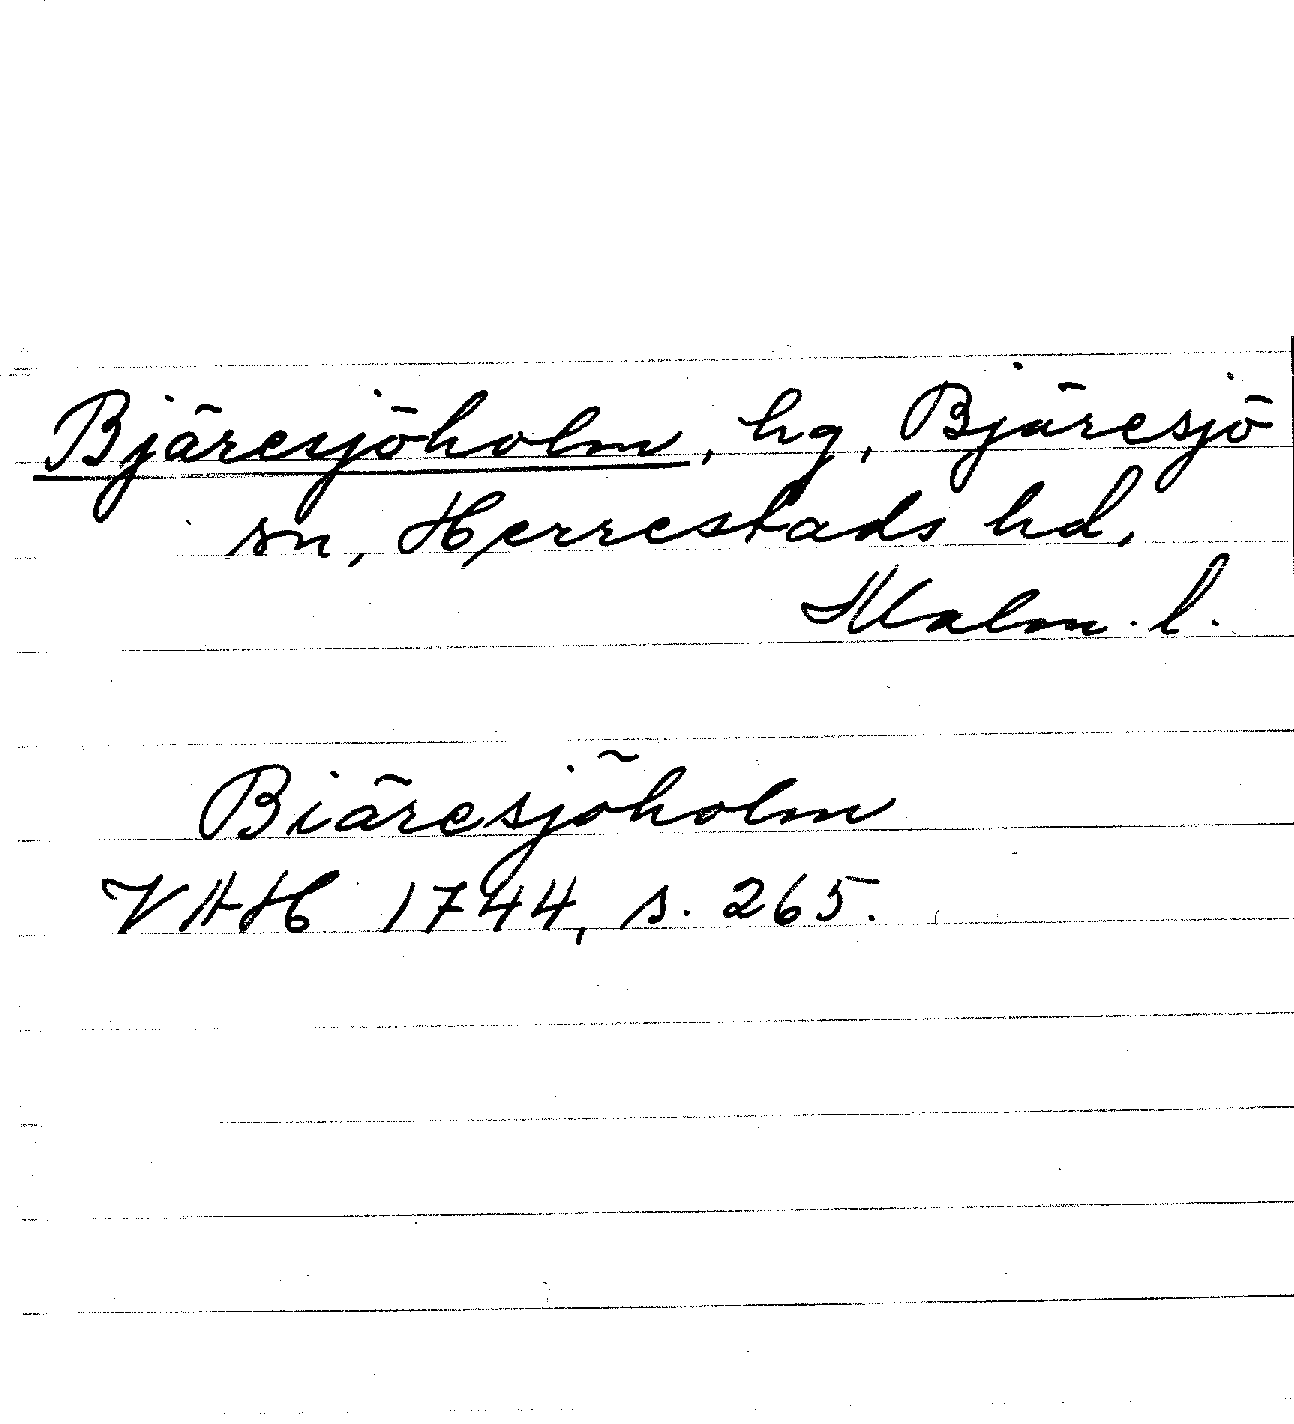 Bjäresjöholm, hg, Bjäresjö
sn, Herrestads hd,
Malm. l.
Biäresjöholm
VAH 1744, s. 265.